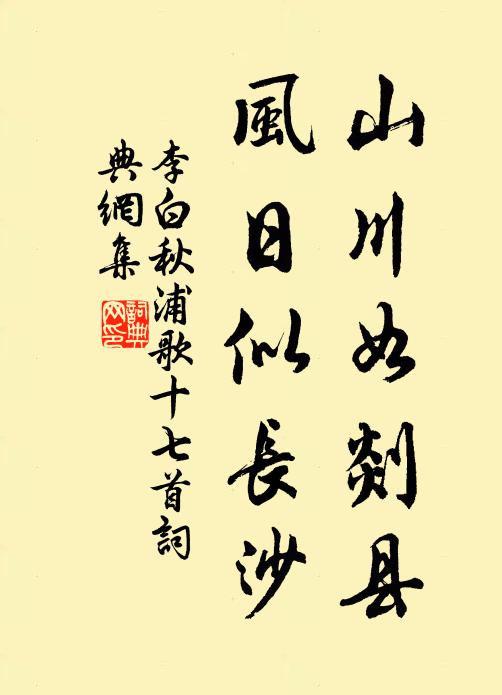 山川如剡县
風日似長沙
李白秋浦歌十七首詞
典網集
詞典網印